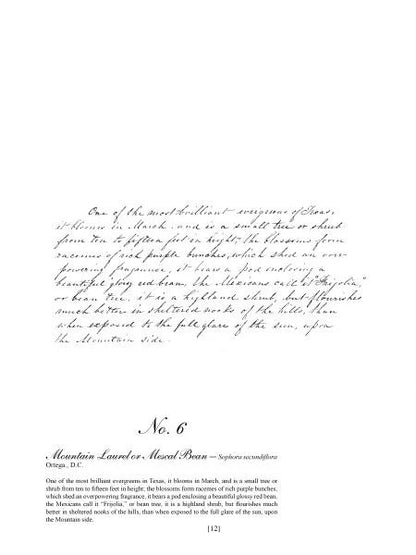 One of the most brilliant evergreens of Texas,
it blooms in March, and is a small tree or shrub
from ten to fifteen feet in height; the blossoms form
racemes of rich purple bunches, which shed an over-
powering fragrance, it bears a pod enclosing a
beautiful glossy red bean, the Mexicans call it "Frijolia,"
or bean tree, it is a highland shrub, but flourishes
much better in sheltered nooks of the hills, than
when exposed to the full glare of the sun, upon
the Mountain side.
No. 6
Mountain Laurel or Mescal Bean – Sophora secundiflora
Ortega., D.C.
One of the most brilliant evergreens in Texas, it blooms in March, and is a small tree or
shrub from ten to fifteen feet in height; the blossoms form racemes of rich purple bunches,
which shed an overpowering fragrance, it bears a pod enclosing a beautiful glossy red bean,
the Mexicans call it "Frijolia," or bean tree, it is a highland shrub, but flourishes much
better in sheltered nooks of the hills, than when exposed to the full glare of the sun, upon
the Mountain side.
[12]